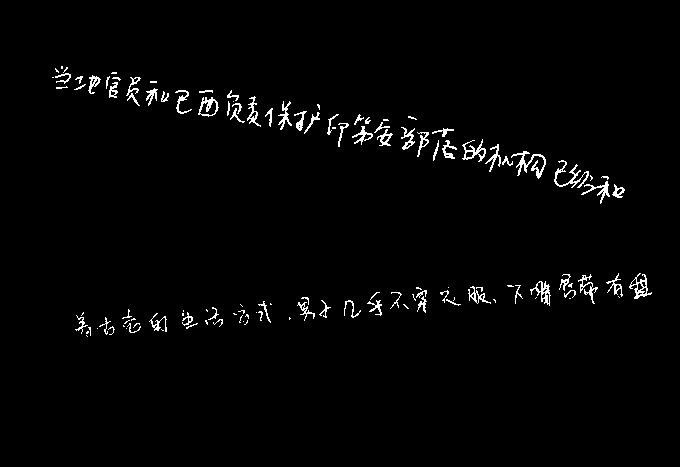 当地官员和巴西负责保护印第安部落的机构已经和
着古老的生活方式，男子几乎不穿衣服、下嘴唇带有盘